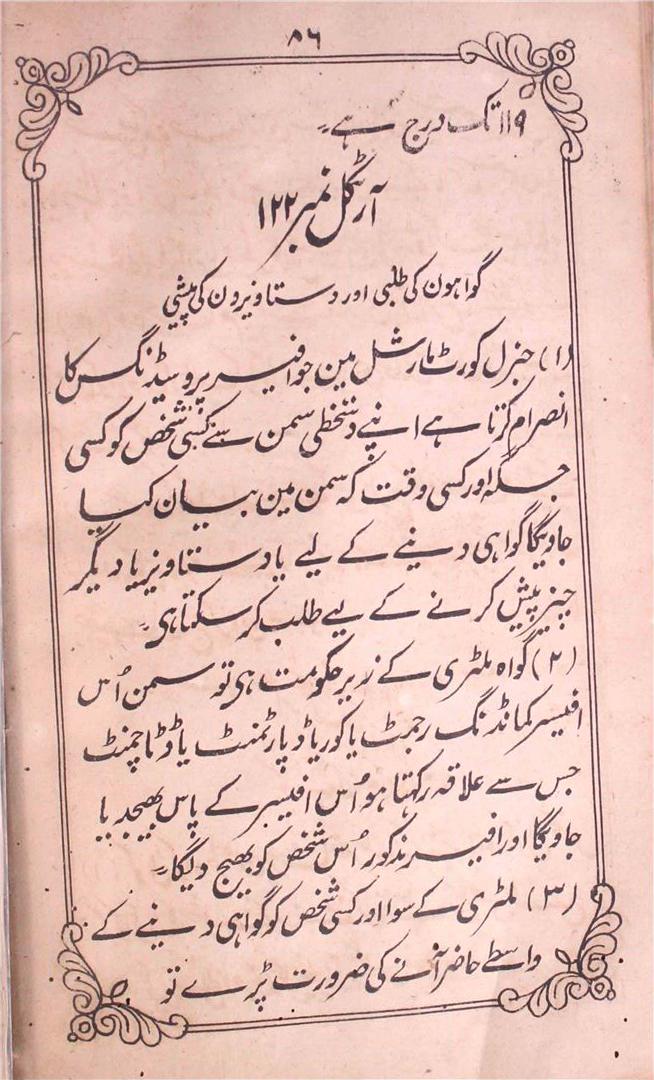 ۵۶
۱۱۹ تک درج ہے۔
آرٹکل نمبر ۱۲۲
گواہون کی طلبی اور دستاویزون کی پیشی
(۱) جنرل کورٹ مارشل مین جو افیسر پروسیڈنگس کا
انصرام کرتا ہے اپنے دستخطی سمن سے کسی شخص کو کسی
جگہ اور کسی وقت کہ سمن مین بیان کیا
جاویگا گواہی دینے کے لیے یا دستاویز یا دیگر
چیز پیش کرنے کے لیے طلب کر سکتا ہی۔
(۲) گواہ ملٹری کے زیر حکومت ہی تو سمن اُس
افیسر کمانڈنگ رجمنٹ یا کور یا ڈپارٹمنٹ یا ڈٹاچمنٹ
جس سے علاقہ رکہتا ہو اُس افیسر کے پاس بھیجدیا
جاویگا اور افیسر مذکور اُس شخص کو بھیج دیگا۔
(۳) ملٹری کے سوا اور کسی شخص کو گواہی دینے کے
واسطے حاضر آنے کی ضرورت پڑے تو